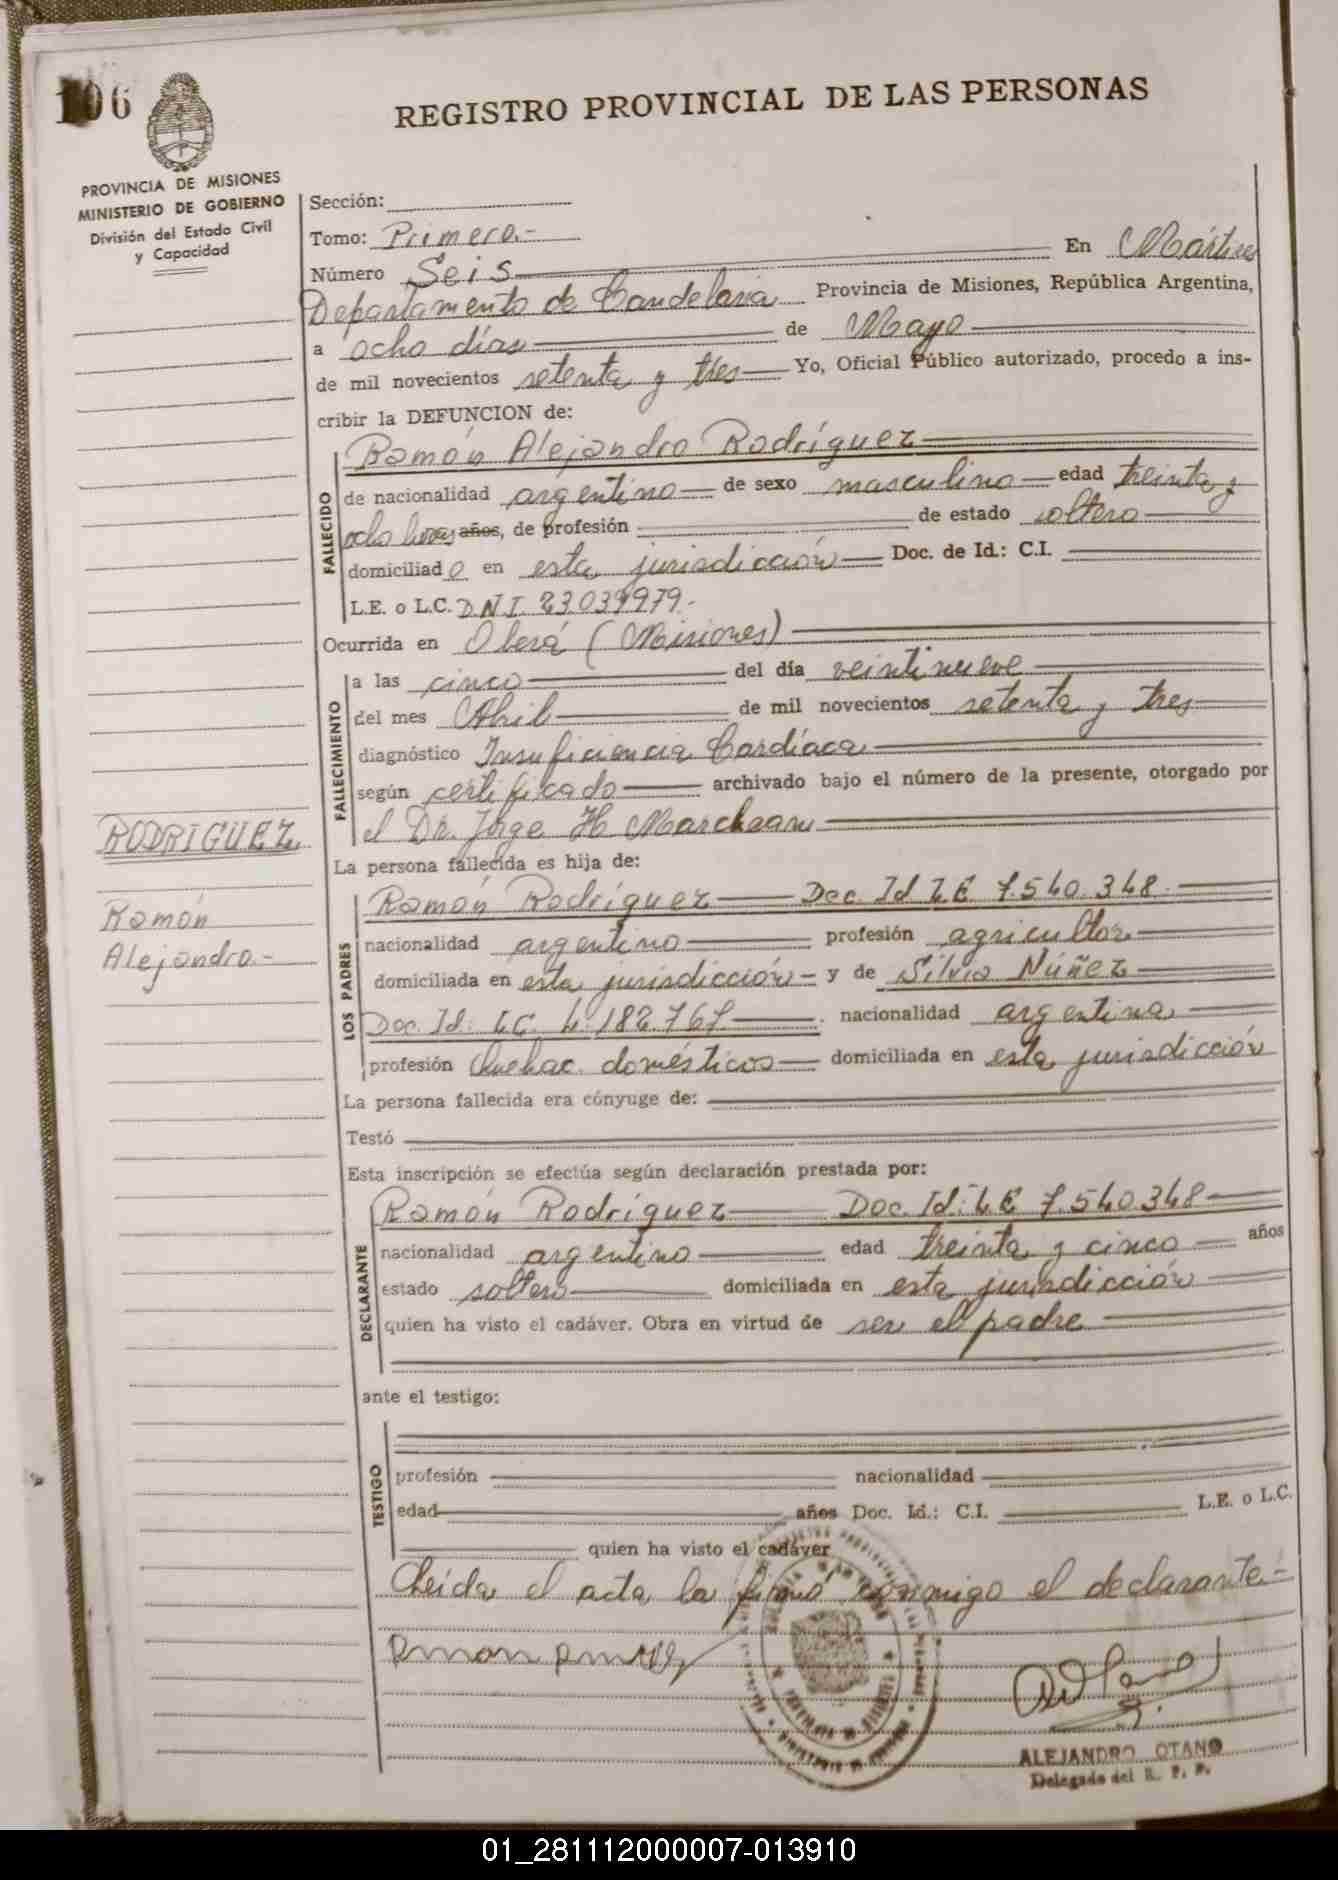 106
REGISTRO PROVINCIAL DE LAS PERSONAS
PROVINCIA DE MISIONES
MINISTERIO DE GOBIERNO
División del Estado Civil
y Capacidad
Sección:
Tomo: Primero.-
Número Seis En Mártires
Departamento de Candelaria Provincia de Misiones, República Argentina,
a ocho días de Mayo
de mil novecientos setenta y tres Yo, Oficial Público autorizado, procedo a ins-
cribir la DEFUNCION de:
FALLECIDO
Ramón Alejandro Rodríguez
de nacionalidad argentino de sexo masculino edad treinta y
ocho horas años, de profesión de estado soltero
domiciliado en esta jurisdicción Doc. de Id.: C.I.
L.E. o L.C. D.N.I. 23.039.979.-
Ocurrida en Oberá (Misiones)
FALLECIMIENTO
a las cinco del día veintinueve
del mes Abril de mil novecientos setenta y tres
diagnóstico Insuficiencia Cardíaca
según certificado archivado bajo el número de la presente, otorgado por
el Dr. Jorge H
RODRIGUEZ
Ramón
Alejandro.-
La persona fallecida es hija de:
LOS PADRES
Ramón Rodríguez Doc. Id L E 7.540.348.-
nacionalidad argentino profesión agricultor
domiciliada en esta jurisdicción y de Silvia Núñez
Doc. Id: L.C. 4.182.767. nacionalidad argentina
profesión Quehac. domésticos domiciliada en esta jurisdicción
La persona fallecida era cónyuge de:
Testó
Esta inscripción se efectúa según declaración prestada por:
DECLARANTE
Ramón Rodríguez Doc. Id: L E 7.540.348
nacionalidad argentino edad treinta y cinco años
estado soltero domiciliada en esta jurisdicción
quien ha visto el cadáver. Obra en virtud de ser el padre
ante el testigo:
TESTIGO
profesión nacionalidad
edad años Doc. Id.: C.I. L.E. o L.C.
quien ha visto el cadáver
Leída el acta la firmó conmigo el declarante.-
ALEJANDRO OTANO
Delegado del R. P. P.
01_281112000007-013910